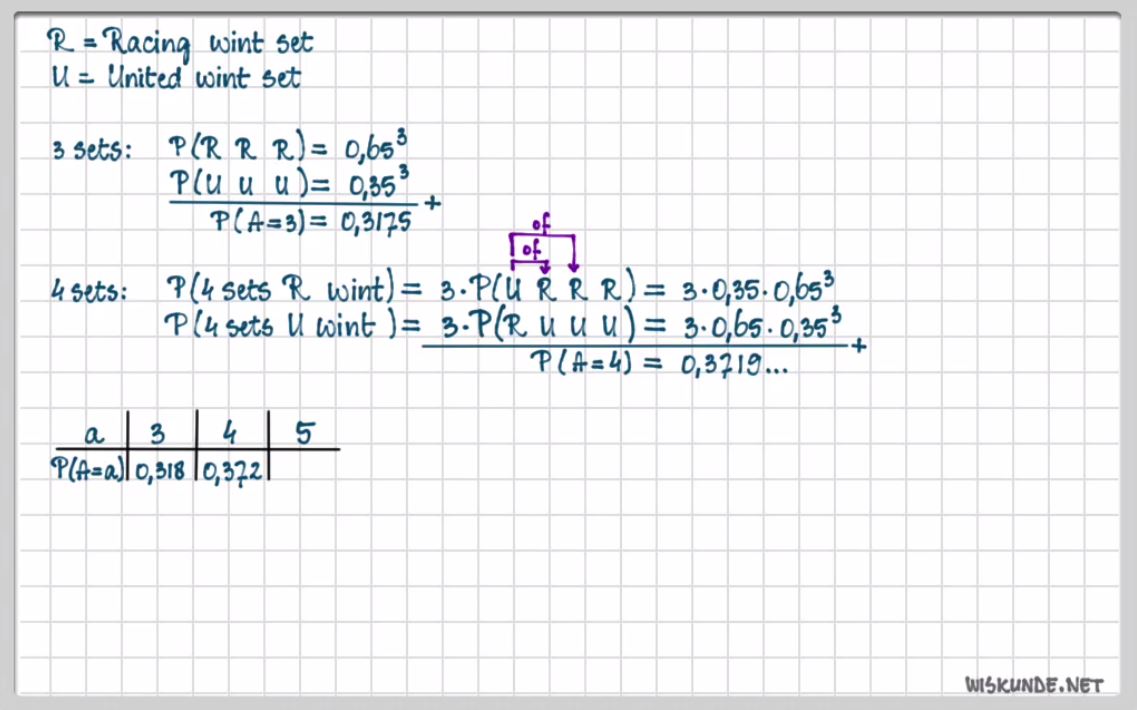 R = Racing wint set
U = United wint set
3 sets: P(R R R) = 0,65³
P(U U U) = 0,35³
+
P(A=3) = 0,3175
of
of
4 sets: P(4 sets R wint) = 3·P(U R R R) = 3·0,35·0,65³
P(4 sets U wint ) = 3·P(R U U U) = 3·0,65·0,35³
+
P(A=4) = 0,3719...
a 3 4 5
P(A=a) 0,318 0,372
WISKUNDE.NET